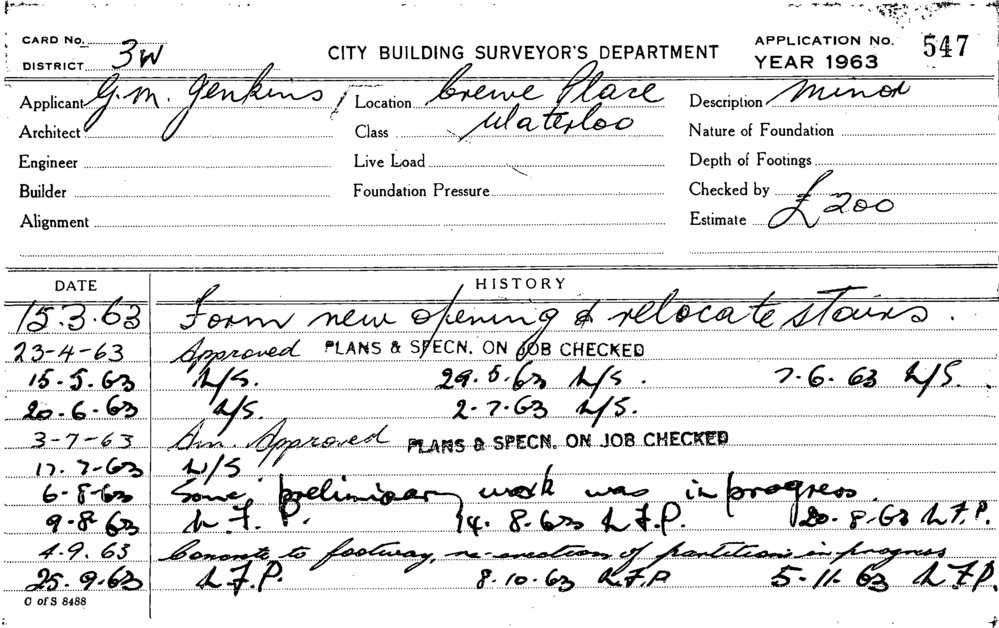 CARD No.
DISTRICT 3W
CITY BUILDING SURVEYOR'S DEPARTMENT
APPLICATION No. 547
YEAR 1963
Applicant G.M. Jenkins
Location Crewe Place
Description Minor
Architect
Class Waterloo
Nature of Foundation
Engineer
Live Load
Depth of Footings
Builder
Foundation Pressure
Checked by
Alignment
Estimate £200
DATE HISTORY
15.3.63 Form new opening & relocate stairs.
23-4-63 Approved PLANS & SPECN. ON JOB CHECKED
15.5.63 N/S. 29.5.63 N/S. 7.6.63 N/S.
20.6.63 N/S. 2.7.63 N/S.
3-7-63 Am. Approved PLANS & SPECN. ON JOB CHECKED
17.7.63 N/S
6-8-63 Some preliminary work was in progress.
9.8.63 N.F.P. 14.8.63 N.F.P. 20.8.63 N.F.P.
4.9.63 Concrete to footway, re-erection of partitions in progress
25.9.63 N.F.P. 8.10.63 N.F.P 5.11.63 N.F.P.
C of S 8488